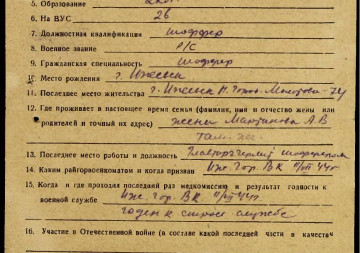 5. Образование
6. На ВУС 26
7. Должностная квалификация шоффер
8. Военное звание р/с
9. Гражданская специальность шоффер
10. Место рождения г. Ижевск
11. Последнее место жительства г. Ижевск
12. Где проживает в настоящее время семья (фамилия, имя и отчество жены или
родителей и точный их адрес) жена Мартынова А В
там же
13. Последнее место работы и должность шоффером
14. Каким райгорвоенкоматом и когда призван Иж. Гор. ВК 44г.
15. Когда и где проходил последний раз медкомиссию и результат годности к
военной службе Иж. Гор. ВК 44г.
годен к строев службе
16. Участие в Отечественной войне (в составе какой последней части в качестве